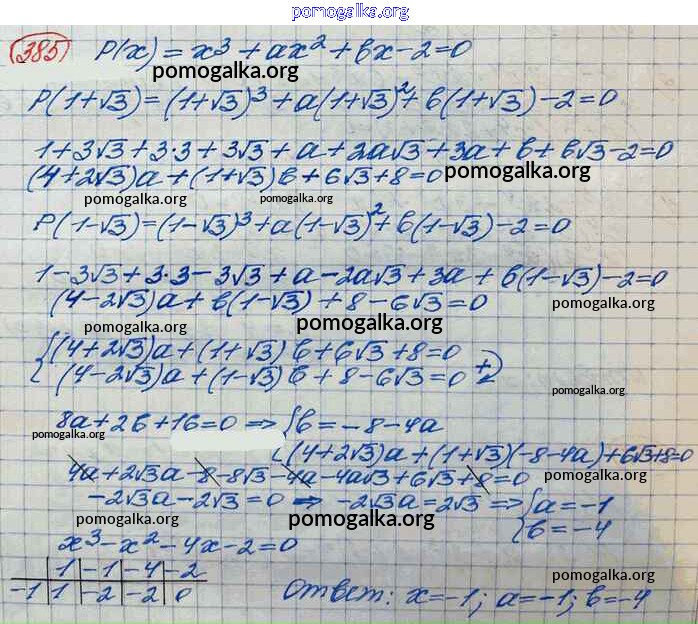 pomogalka.org
385 P(x) = x³ + ax² + bx - 2 = 0
pomogalka.org
P(1+√3) = (1+√3)³ + a(1+√3)² + b(1+√3) - 2 = 0
pomogalka.org
1 + 3√3 + 3·3 + 3√3 + a + 2a√3 + 3a + b + b√3 - 2 = 0
(4+2√3)a + (1+√3)b + 6√3 + 8 = 0 pomogalka.org
pomogalka.org pomogalka.org
P(1-√3) = (1-√3)³ + a(1-√3)² + b(1-√3) - 2 = 0
1 - 3√3 + 3·3 - 3√3 + a - 2a√3 + 3a + b(1-√3) - 2 = 0
(4-2√3)a + b(1-√3) + 8 - 6√3 = 0 pomogalka.org
pomogalka.org pomogalka.org
{(4+2√3)a + (1+√3)b + 6√3 + 8 = 0
(4-2√3)a + (1-√3)b + 8 - 6√3 = 0 +
pomogalka.org
8a + 2b + 16 = 0 ⇒ {b = -8 - 4a
pomogalka.org (4+2√3)a + (1+√3)(-8-4a) + 6√3 + 8 = 0
4a + 2√3a - 8 - 8√3 - 4a - 4a√3 + 6√3 + 8 = 0 pomogalka.org
-2√3a - 2√3 = 0 ⇒ -2√3a = 2√3 ⇒ {a = -1
pomogalka.org pomogalka.org b = -4
x³ - x² - 4x - 2 = 0
1 -1 -4 -2 pomogalka.org
-1 1 -2 -2 0 Ответ: x = -1; a = -1; b = -4
pomogalka.org